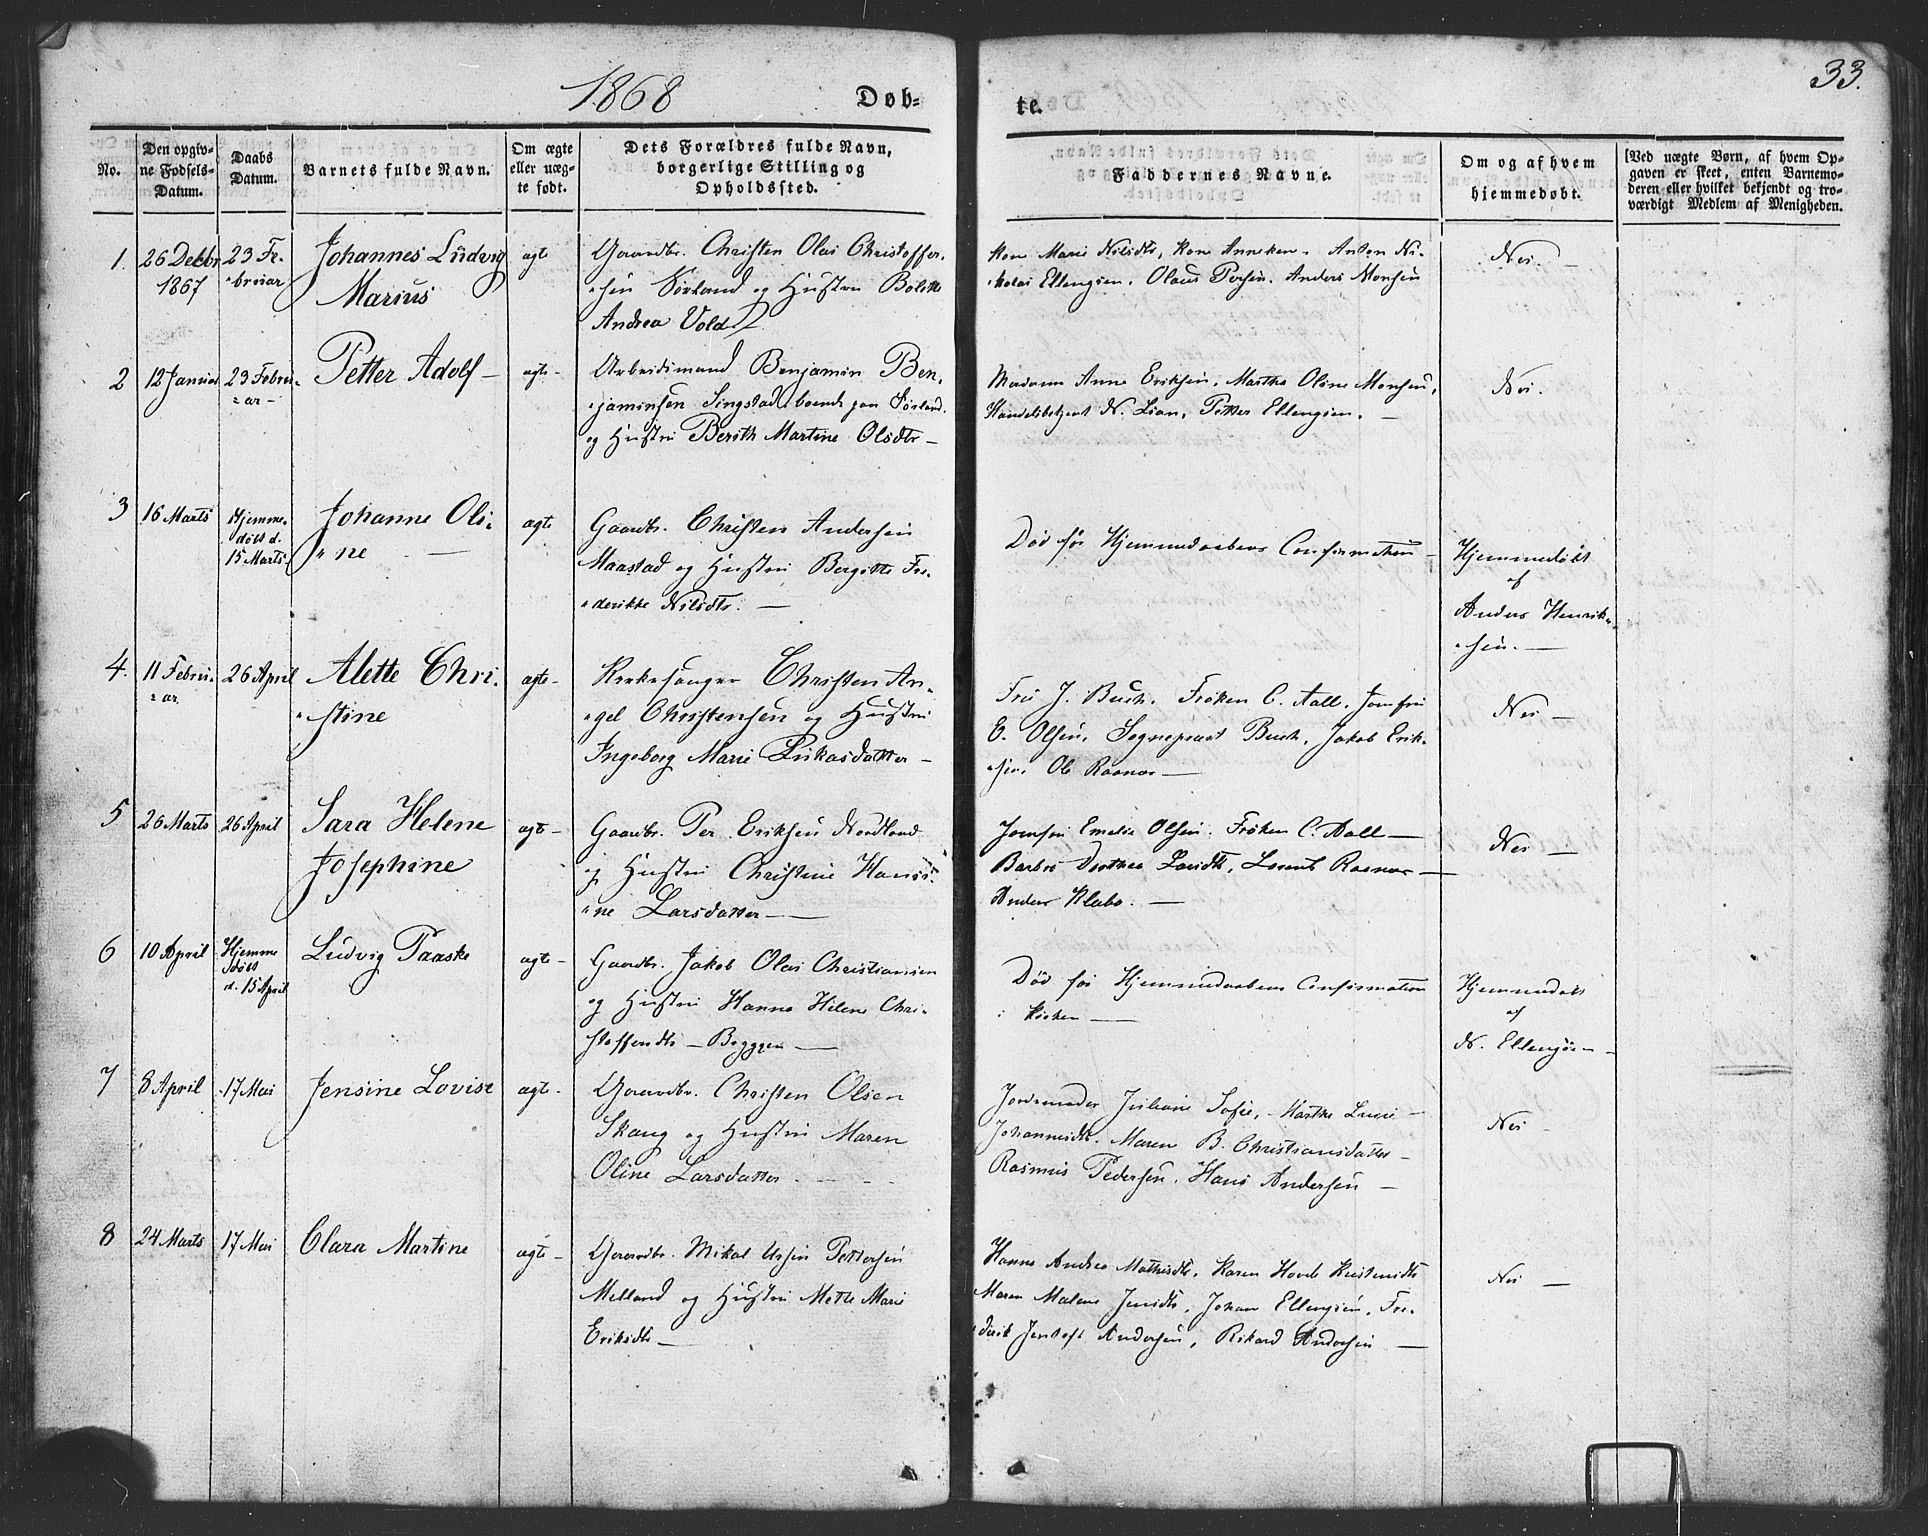 1868
Døb-
te.
33.
No.
Den opgiv-
ne Fødsels-
Datum.
Daabs
Datum.
Barnets fulde Navn.
Om ægte
eller uæg-
te født.
Dets Forældres fulde Navn,
borgerlige Stilling og
Opholdssted.
Faddernes Navne.
Om og af hvem
hjemmedøbt.
(Ved uægte Børn, af hvem Op-
gaven er skeet, enten Barnemo-
deren eller hvilket bekjendt og tro-
værdigt Medlem af Menigheden.
1.
26 Decbr
1867
23 Fe-
bruar
Johannes Ludvig
Marius
ægte
Gaardbr. Christen Olai Christoffer-
sen Sørland og Hustru Bolette
Andrea Vold
Kone Marie Nilsdtr, Kone Anneken - Anton Ni-
kolai Ellengsen. Olaus Persen. Anders Monsen
Nei. -
2
12 Januar
23 Febru-
ar -
Petter Adolf -
ægte -
Arbeidsmand Benjamin Ben-
jaminsen Singstad, boende paa Sørland.
og Hustru Berith Martine Olsdtr -
Madam Anne Eriksen. Martha Oline Monsen,
Handelsbetjent N. Lian, Petter Ellengsen. -
Nei.
3
16 Marts
Hjemme-
døbt d.
15 Marts
Johanne Oli-
ne -
ægte
Gaardbr. Christen Andersen
Maastad og Hustru Bergitte Fre-
derikke Nilsdtr. -
Død før Hjemmedaabens Confirmation -
Hjemmedøbt
af
Anders Henrik-
sen. -
4.
11 Febru-
ar
26 April
Alette Chri-
stine
ægte -
Kirkesanger Christen An-
gel Christensen og Hustru
Ingeborg Marie Lukasdatter -
Fru J. Buch, Frøken C. Aall, Jomfru
E. Olsen, Sognepræst Buch, Jakob Erik-
sen Ole Rasnas -
Nei -
5
26 Marts
26 April
Sara Helene
Josephine
ægte -
Gaardbr. Per Eriksen Nordland
og Hustru Christine Hansi-
ne Larsdatter -
Jomfru Emelie Olsen. Frøken C. Aall -
Barbro Dorthea Larsdtr, Lorents Rasnas -
Anders Klabo. -
Nei -
6
10 April
Hjemme
døbt
d. 15 April
Ludvig Paaske
ægte -
Gaardbr. Jakob Olai Christiansen
og Hustru Hanna Helene Chri-
stoffersdtr - Byggen -
Død før Hjemmedaabens Confirmation
i Kirken -
Hjemmedøbt
af
N. Ellengsen -
7
8 April
17 Mai
Jensine Lovise
ægte -
Gaardbr. Christen Olsen
Skaug og Hustru Maren
Oline Larsdatter -
Jordmoder Juliane Sofie, - Marthe Lucie -
Johannesdtr. Maren B. Christiansdatter -
Rasmus Pedersen, Hans Andersen -
Nei -
8
24 Marts
17 Mai
Clara Martine
ægte -
Gaardbr. Mikal Ursin Pettersen
Melland og Hustru Mette Marie
Eriksdtr -
Hanna Andrea Mathisdtr, Karen Hovel Kristensdtr
Maren Malene Jensdtr, Johan Ellengsen, Fre-
derik Jentoft Andersen, Rikard Andersen -
Nei -